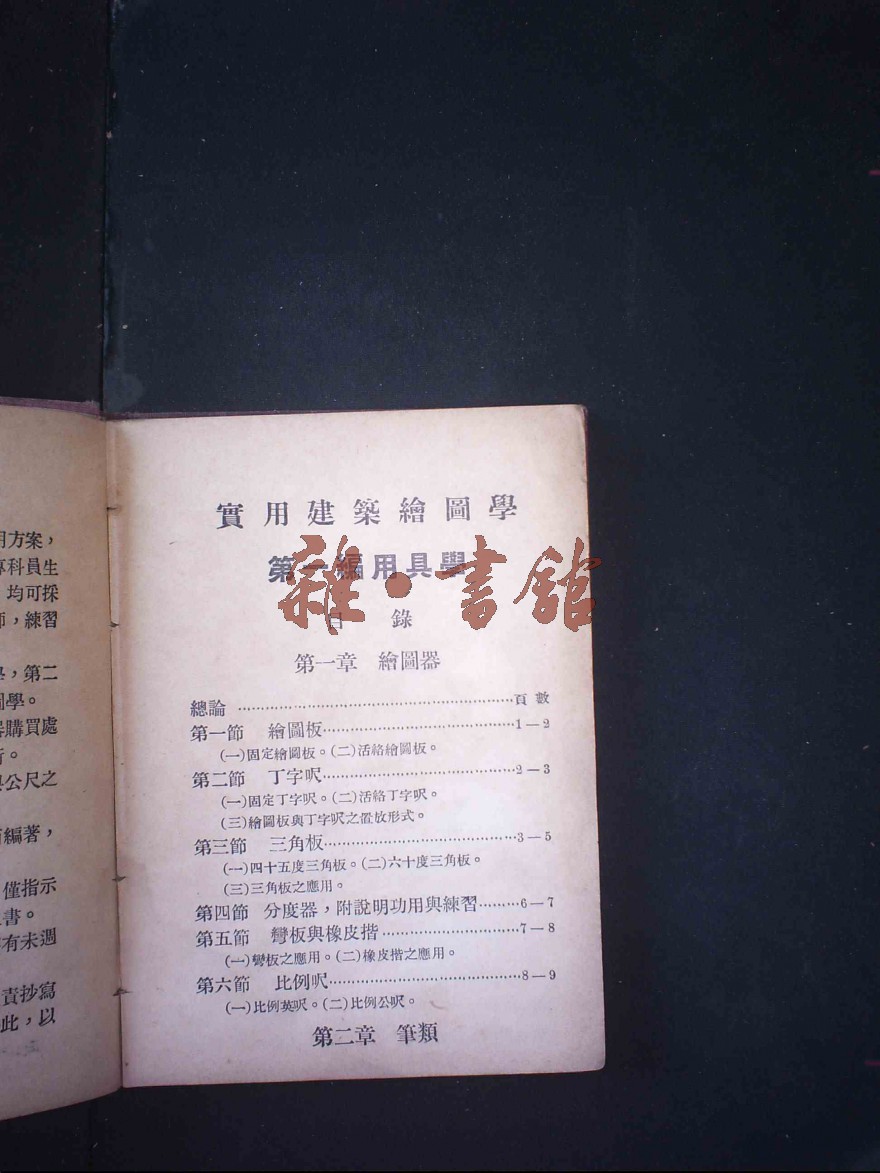 用方案，
專科員生
均可採
師，練習
學，第二
圖學。
器購買處
所。
與公尺之
而編著，
僅指示
書。
有未週
責抄寫
此，以
實用建築繪圖學
第一編用具學
雜·書館
目錄
第一章 繪圖器
總論…………頁數
第一節 繪圖板…………1－2
(一)固定繪圖板。(二)活絡繪圖板。
第二節 丁字呎…………2－3
(一)固定丁字呎。(二)活絡丁字呎。
(三)繪圖板與丁字呎之置放形式。
第三節 三角板…………3－5
(一)四十五度三角板。(二)六十度三角板。
(三)三角板之應用。
第四節 分度器，附說明功用與練習………6－7
第五節 彎板與橡皮揩…………7－8
(一)彎板之應用。(二)橡皮揩之應用。
第六節 比例呎…………8－9
(一)比例英呎。(二)比例公呎。
第二章 筆類